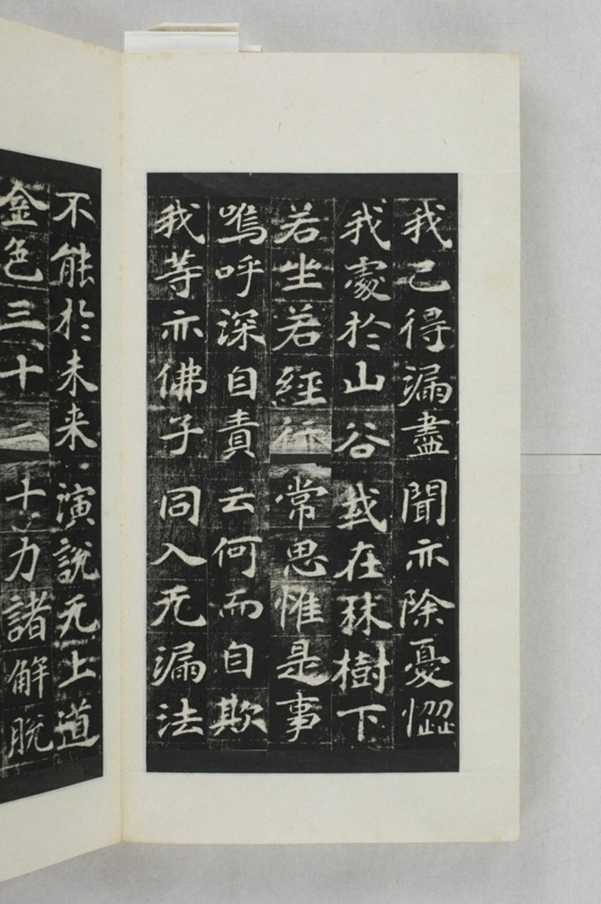 我已得漏盡聞亦除憂惱
我處於山谷或在林樹下
若坐若經行常思惟是事
嗚呼深自責云何而自欺
我等亦佛子同入无漏法
不能於未来演說无上道
金色三十二十力諸解脫